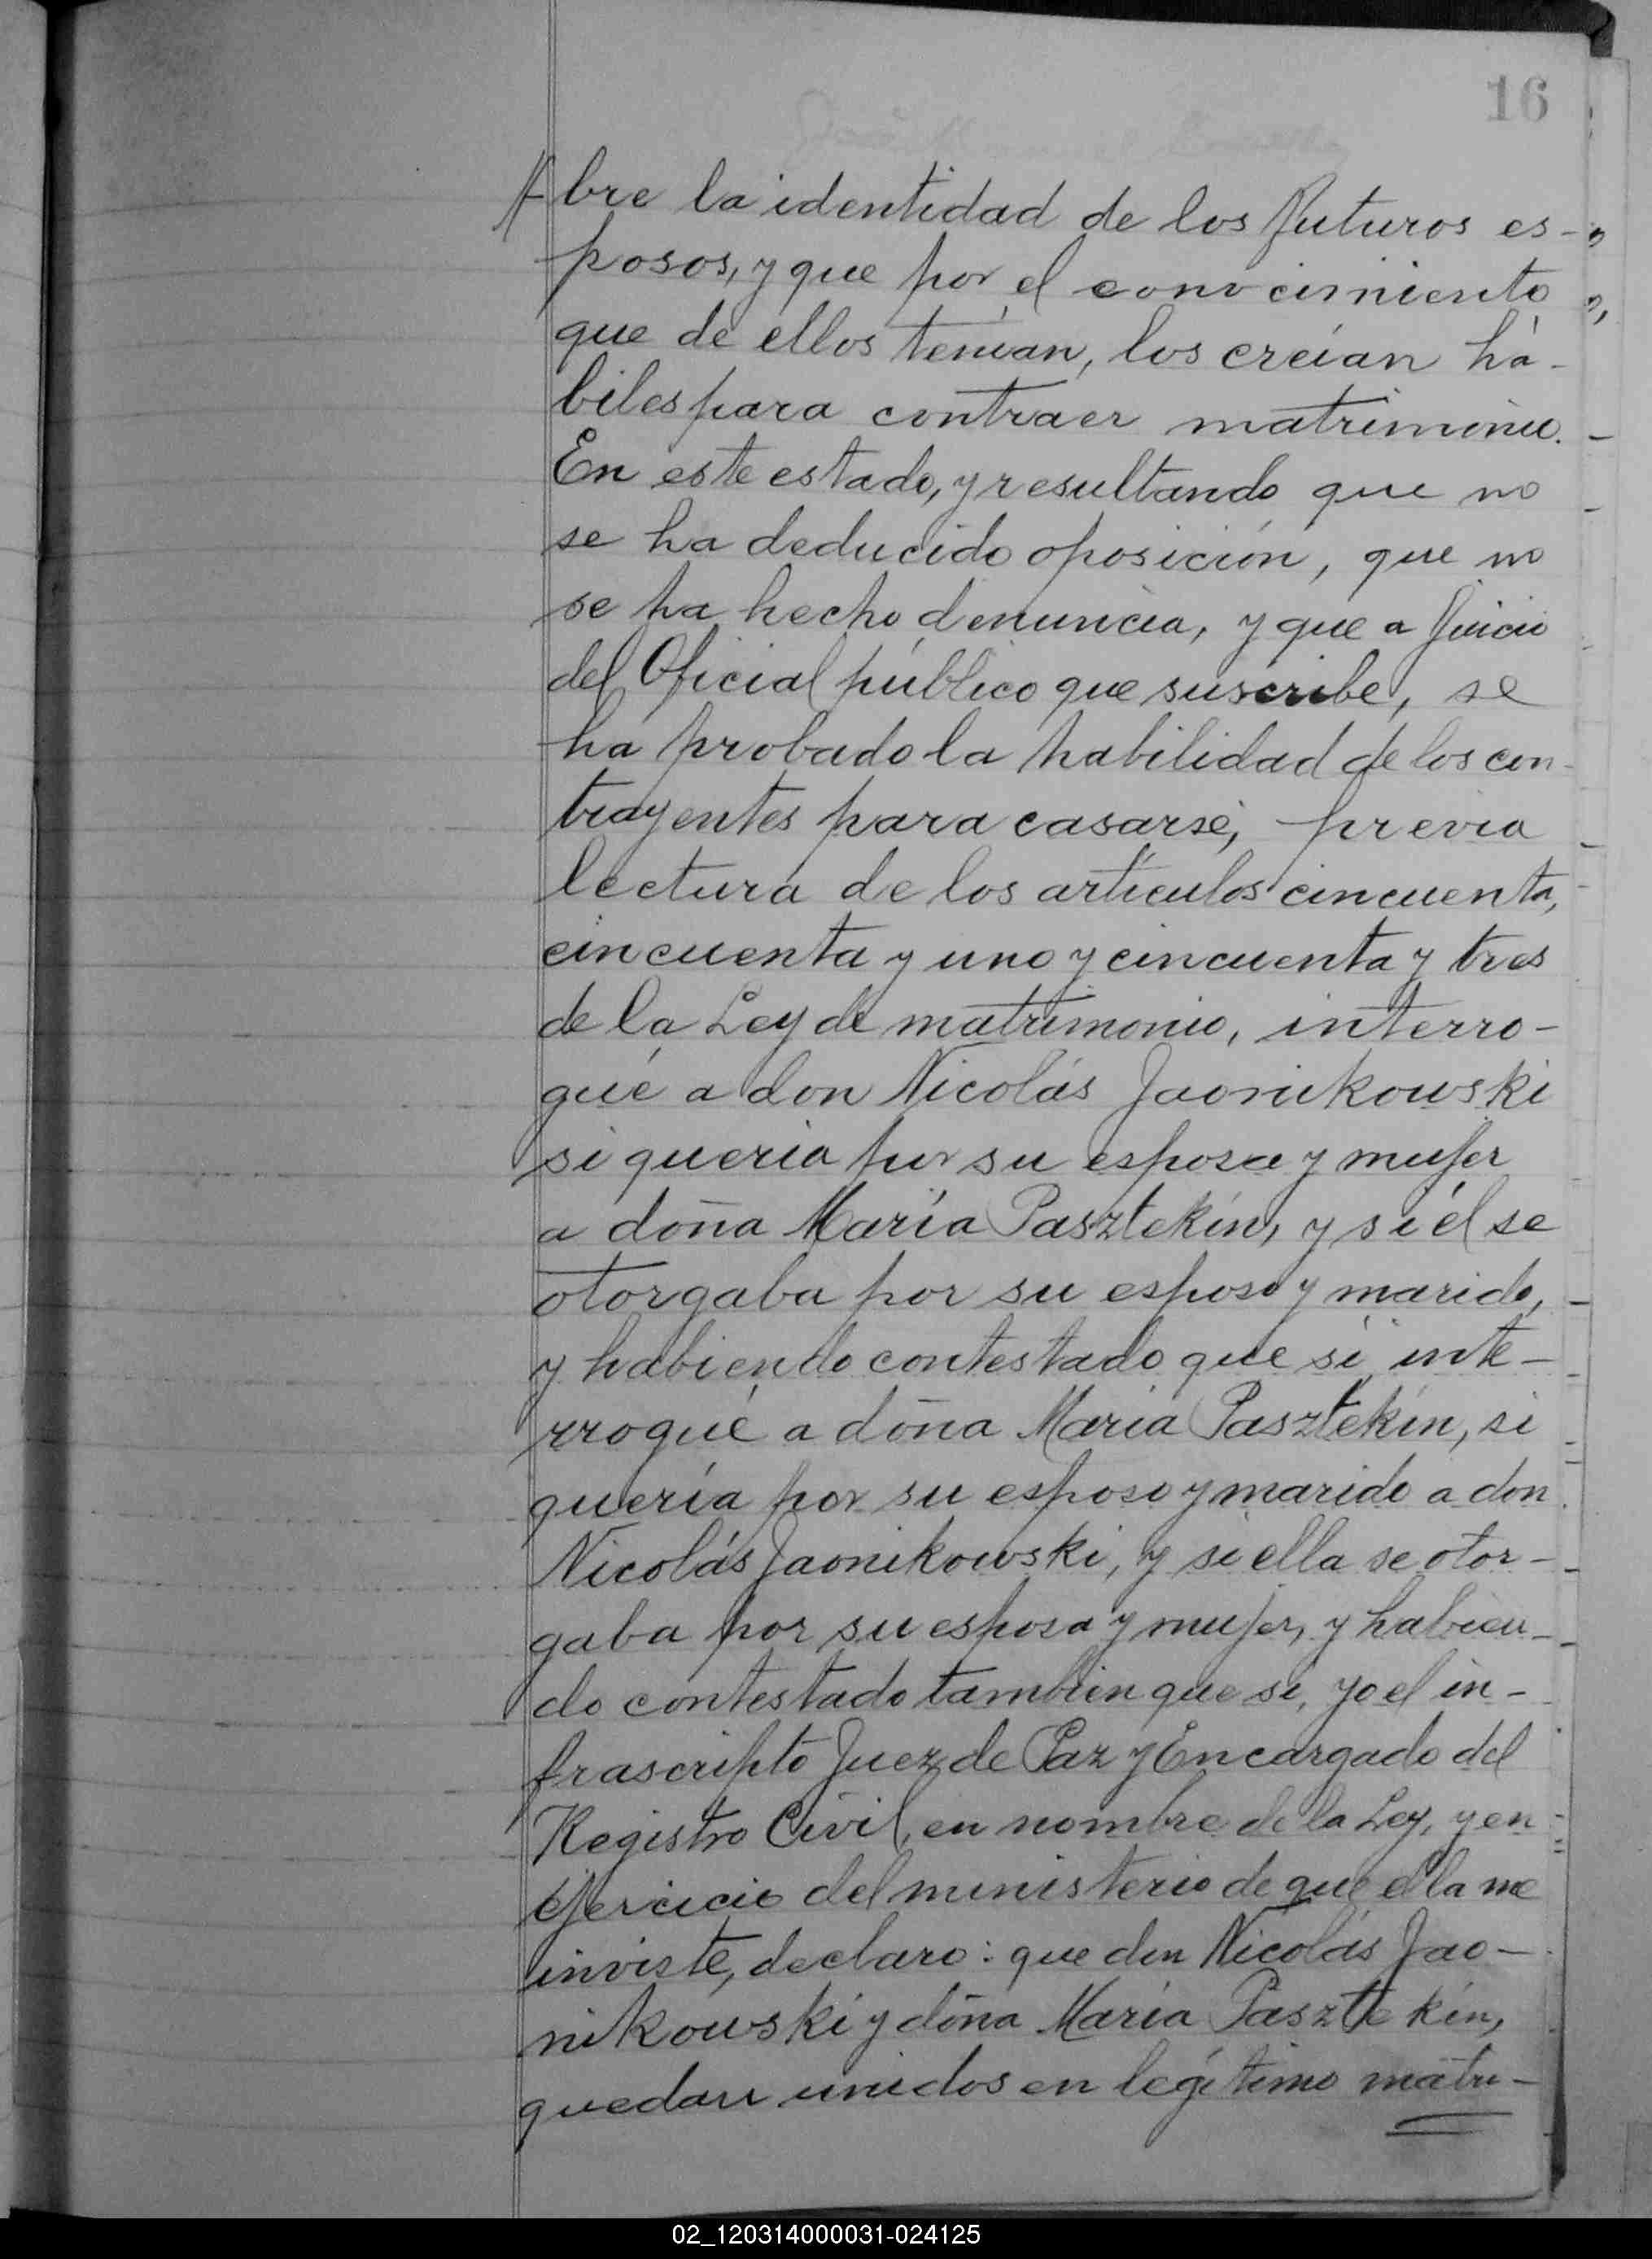 16
bre la identidad de los futuros es-
posos, y que por el conocimiento
que de ellos tenían, los creían há-
biles para contraer matrimonio.
En este estado, y resultando que no
se ha deducido oposición, que no
se ha hecho denuncia, y que a juicio
del Oficial público que suscribe, se
ha probado la habilidad de los con-
trayentes para casarse, previa
lectura de los artículos cincuenta,
cincuenta y uno y cincuenta y tres
de la Ley de matrimonio, interro-
gué a don Nicolás Jaonikowski
si quería por su esposa y mujer
a doña María Pasztekín, y si él se
otorgaba por su esposo y marido,
y habiendo contestado que sí, inte-
rrogué a doña María Pasztekín, si
quería por su esposo y marido a don
Nicolás Jaonikowski, y si ella se otor-
gaba por su esposa y mujer, y habien-
do contestado tambien que sí, yo el in-
frascripto Juez de Paz y Encargado del
Registro Civil, en nombre de la Ley, y en
ejercicio del ministerio de que ella me
inviste, declaro: que don Nicolás Jao-
nikowski y doña María Pasztekín,
quedan unidos en legítimo matri-
02_120314000031-024125